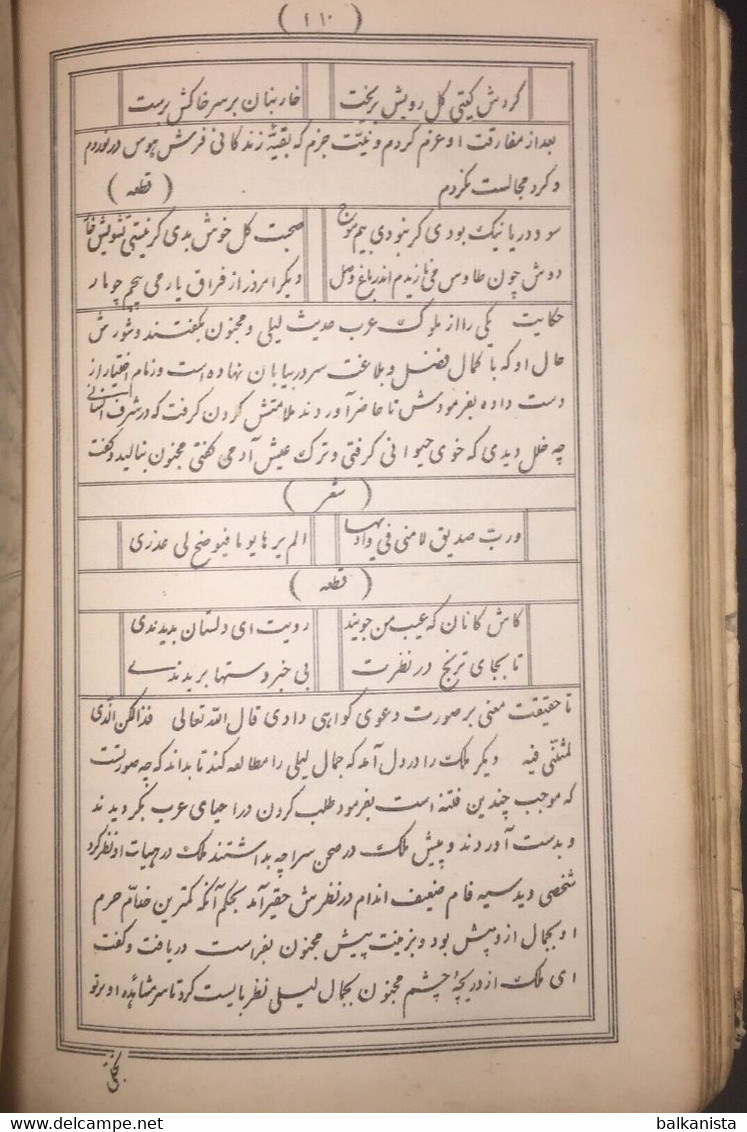 ( ۱۱۰ )
گردش گیتی گل رویش بریخت خار بنان بر سر خاکش برست
بعد از مفارقت او عزم کردم و نیت جزم که بقیهٔ زندگانی فرش هوس درنوردم
و گرد مجالست نگردم ( قطعه )
سود دریا نیک بودی گر نبودی بیم موج صحبت گل خوش بدی گر نیستی تشویش خار
دوش چون طاوس می نازیدم اندر باغ وصل دیگر امروز از فراق یار می پیچم چو مار
حکایت یکی را از ملوک عرب حدیث لیلی و مجنون بگفتند و شورش
حال او که با کمال فضل و بلاغت سر در بیابان نهاده است و زمام اختیار از
دست داده بفرمودش تا حاضر آوردند ملامتش کردن گرفت که در شرف انسانی
چه خلل دیدی که خوی حیوانی گرفتی و ترک عیش آدمی گفتی مجنون بنالید و گفت
( شعر )
ورب صدیق لامنی فی ودادها الم یرها یوما فیوضح لی عذری
( قطعه )
کاش کانان که عیب من جویند رویت ای دلستان بدیدندی
تا بجای ترنج در نظرت بی خبر دستها بریدندی
تا حقیقت معنی بر صورت دعوی گواهی دادی قال الله تعالی فذالکن الذی
لمتننی فیه دیگر ملک را در دل آمد که جمال لیلی را مطالعه کند تا بداند که چه صورتست
که موجب چندین فتنه است بفرمود طلب کردن در احیای عرب بگردیدند
و بدست آوردند و پیش ملک در صحن سراچه بداشتند ملک در هیات او نظر کرد
شخصی دید سیه فام ضعیف اندام در نظرش حقیر آمد بحکم آنکه کمترین خدام حرم
او بجمال از و پیش بود و بزینت پیش مجنون بفراست دریافت و گفت
ای ملک از دریچهٔ چشم مجنون بجمال لیلی نظر بایست کرد تا سر مشاهده او بر تو
balkanista